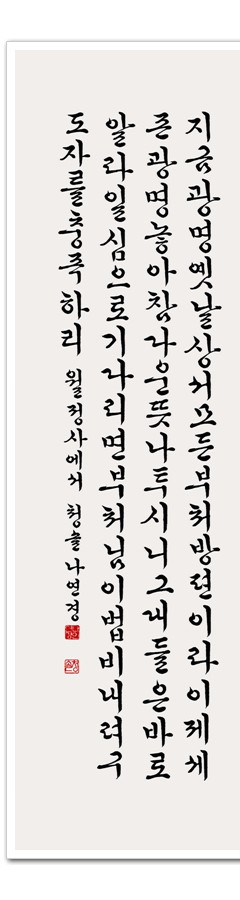 지금광명옛날상서모든부처방편이라이제세
존광명놓아참다운뜻나투시니그대들은바로
알라일심으로기다리면부처님이법비내려구
도자를충족하리 월정사에서 청솔 나연경